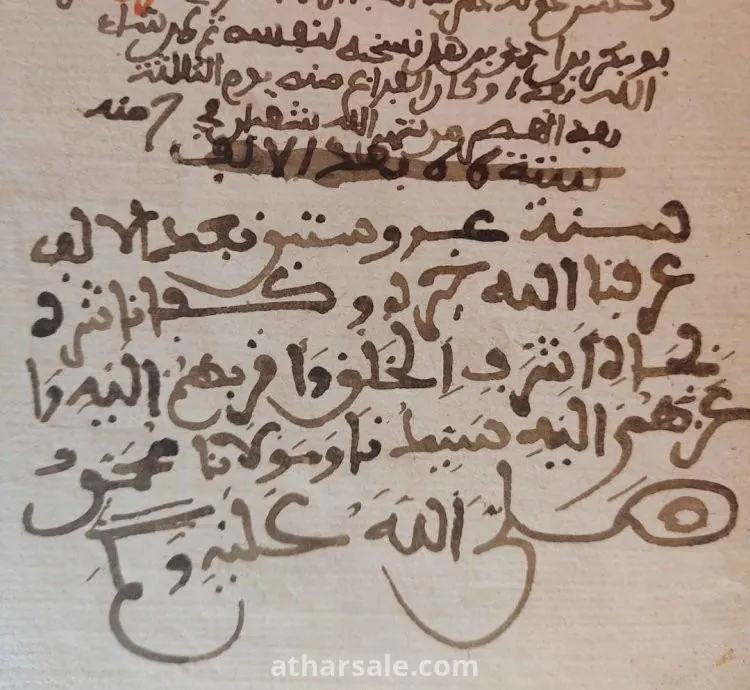 بو بكر بن احمد بن نسخه لنفسه ثم لمن شاء
الله بعده وكان الفراغ منه يوم الثلاثة
بعد العصر من شهر الله شعبان 7 منه
سنة 66 بعد الالف
لسنة وستين بعد الالف
عرفنا الله خيره وكفانا شره
بجاه أَشرف الخَلق وَأَقربهم إليهِ وَأَ
عزهم إليهِ سيدنا وَمَولانا محمد
صلى اللهَ عليهِ و
atharsale.com